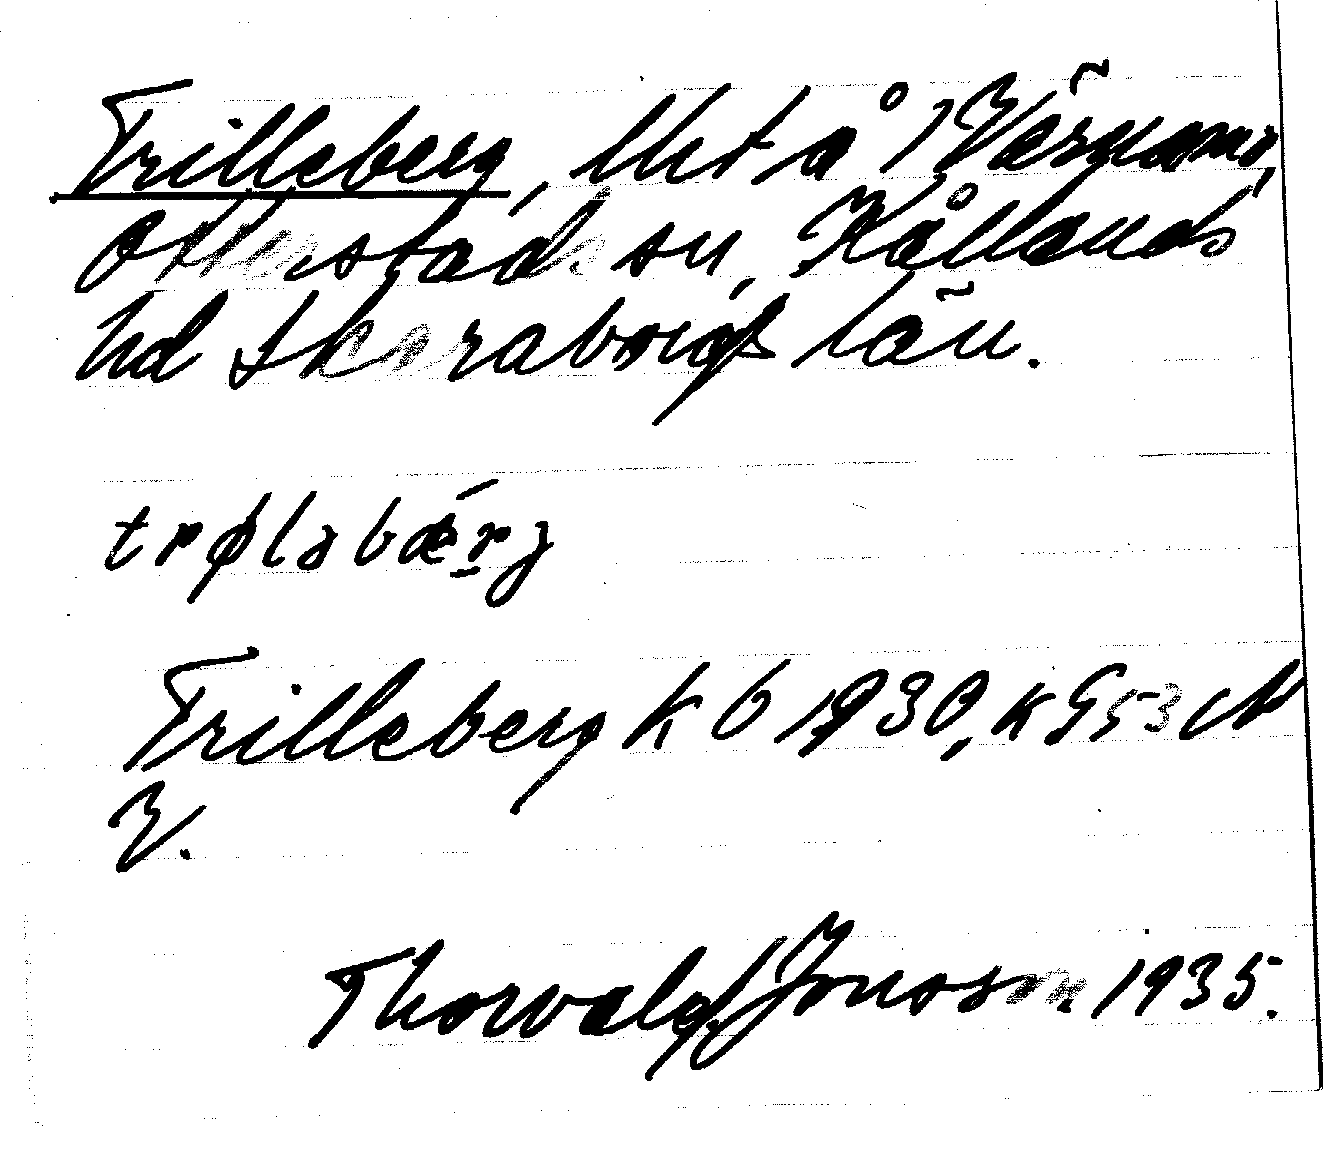 Trilleberg, lht å Värnamo,
Otterstads sn, Kållands
hd Skaraborgs län.
trøləbǽrj
Trilleberg k b 1930, k G 53 N
V.
Thorvald Jonsson 1935.